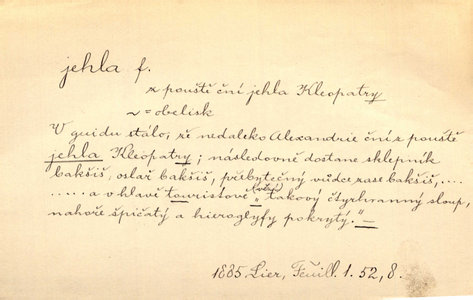 jehla f.
z pouště ční jehla Kleopatry
~ = obelisk
V guidu stálo, že nedaleko Alexandrie ční z pouště
jehla Kleopatry; následovně dostane sklepník
bakšiš, oslař bakšiš, přebytečný vůdce zase bakšiš, ....
..... a v hlavě touristově „takový čtyrhranný sloup,
nahoře špičatý a hieroglyfy pokrytý."—
1885 Lier, Feuill. 1. 52, 8.